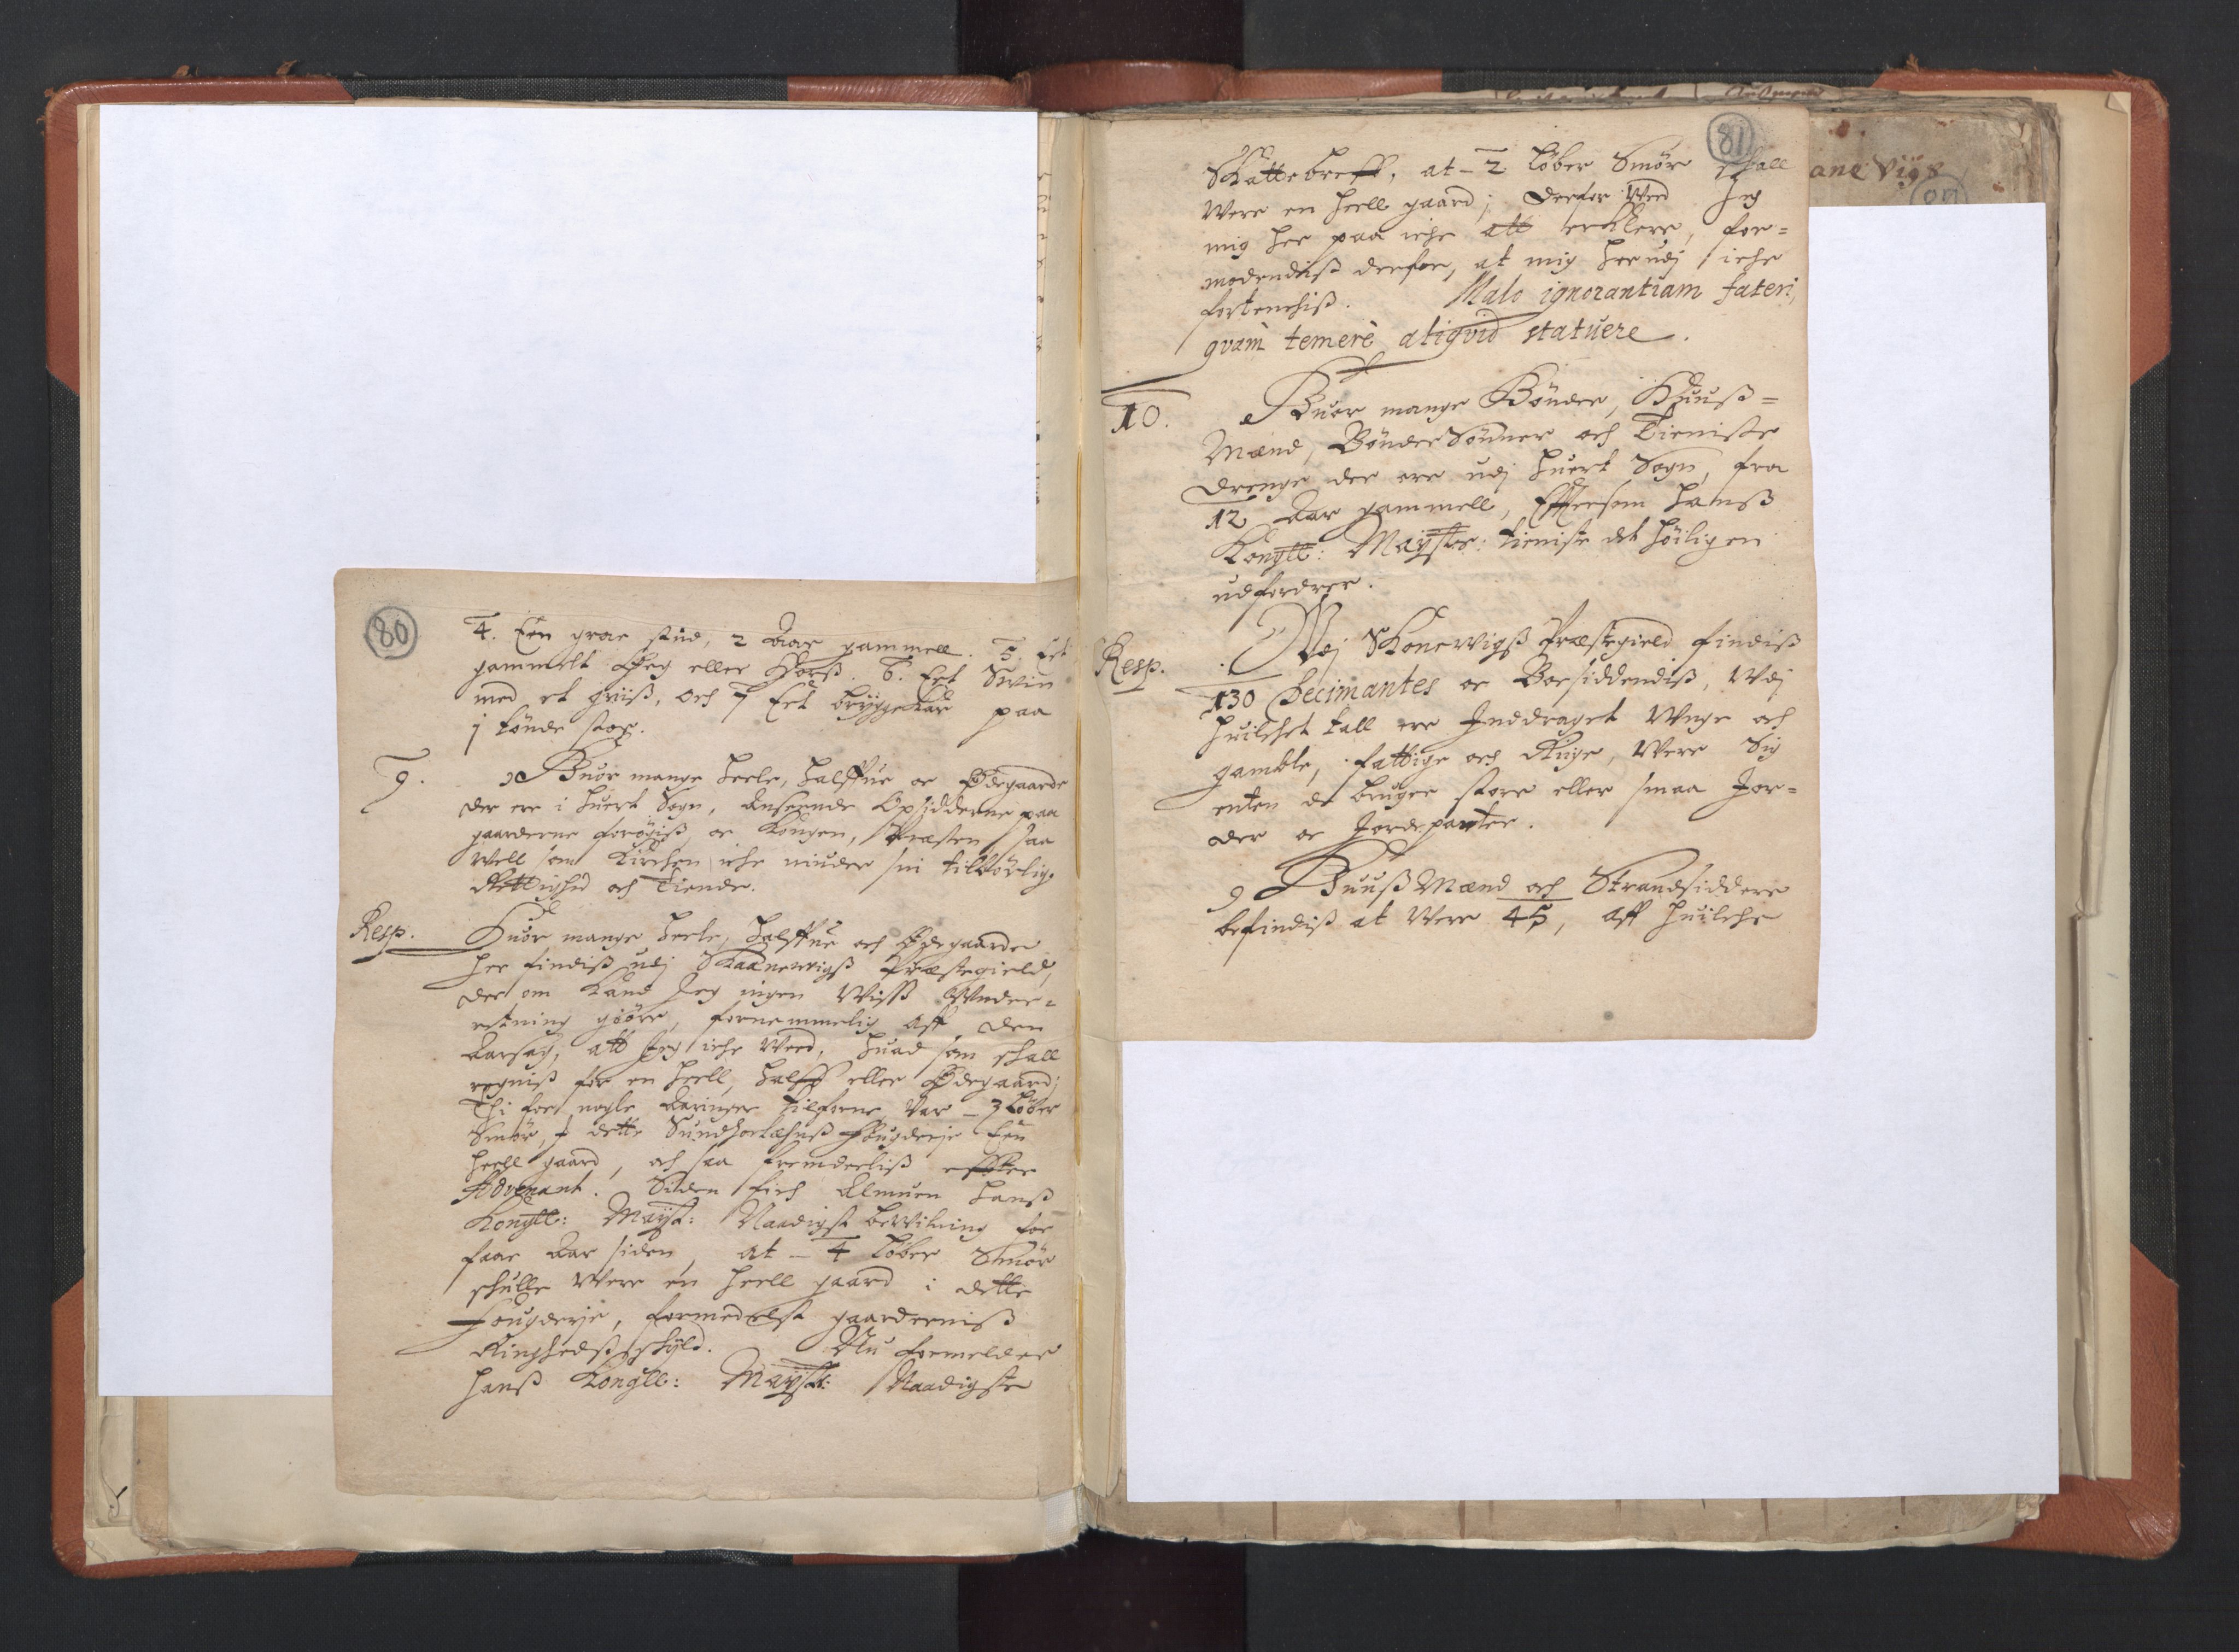 80
4. Een graa stud, 2 Aar gammell. 5 Eet
gammelt Øeg eller Horß. 6. Eet Swin
med et griiß, och 7 Eet bryggekar paa
j tønde stor.
9. Huor mange heele, halffue oc Ødegaarde
der ere i huert Sogn, Anseende Opsidderne paa
gaarderne forøgis, oc Kongen, Præsten saa
well som Kirchen iche minder sin tilbørlige
Rettighed och Tiende.
Resp. Huor mange heele, halffue och Ødegaarde
her findiß udj Skaanewigß Præstegield,
der om kand Jeg ingen Wiss Vnder-
retning giøre, fornemmelig aff den
Aarsag, att Jeg iche Weed, huad som schall
regniß for en heell, halff eller Ødegaard;
Thi for nogle Aaringer tilforne var - 3 Løber
Smør, i dette Sundhorlæhnß Fougderje Een
heell gaard, och saa fremdeeliß effter
Advenant. Siden fich Almuen hanß
Kongll: Mayst: Naadigst beWilning for
faae Aar siden, at - 4 Løber Smør
schulle Were en heell gaard i dette
Fougderje, formedelst gaarderniß
Ringhedß schyld. Nu formelder
hanß Kongll: Maysts: Naadigste
81
Skattebreff, at - 2 Løber Smør schall
Were en heell gaard; Derfor Weed Jeg
mig her paa iche att erklere, for=
modendiß derfor, at mig herudj iche
fortenchiß. Malo ignorantiam fateri,
qvàm temerè aliqvid statuere.
10. Huor mange Bønder, Huuß=
Mænd, BønderSønner och Tieniste
drenge der ere udj huert Sogn, fra
12 Aar gammell, Effersom hanß
Kongll: Maysts: tieniste det høiligen
udfordrer.
Resp. Udj Skonewigß Præstegield findiß
130 Decimantes oc Boesiddendiß, Wdj
huilchet tall ere Inddraget Unge och
gamble, fattige och Riige, Were sig
enten de bruger store eller smaa Jor=
der oc Jordeparter.
HuußMænd och Strandsiddere
befindiß at Were 45, Aff huilche